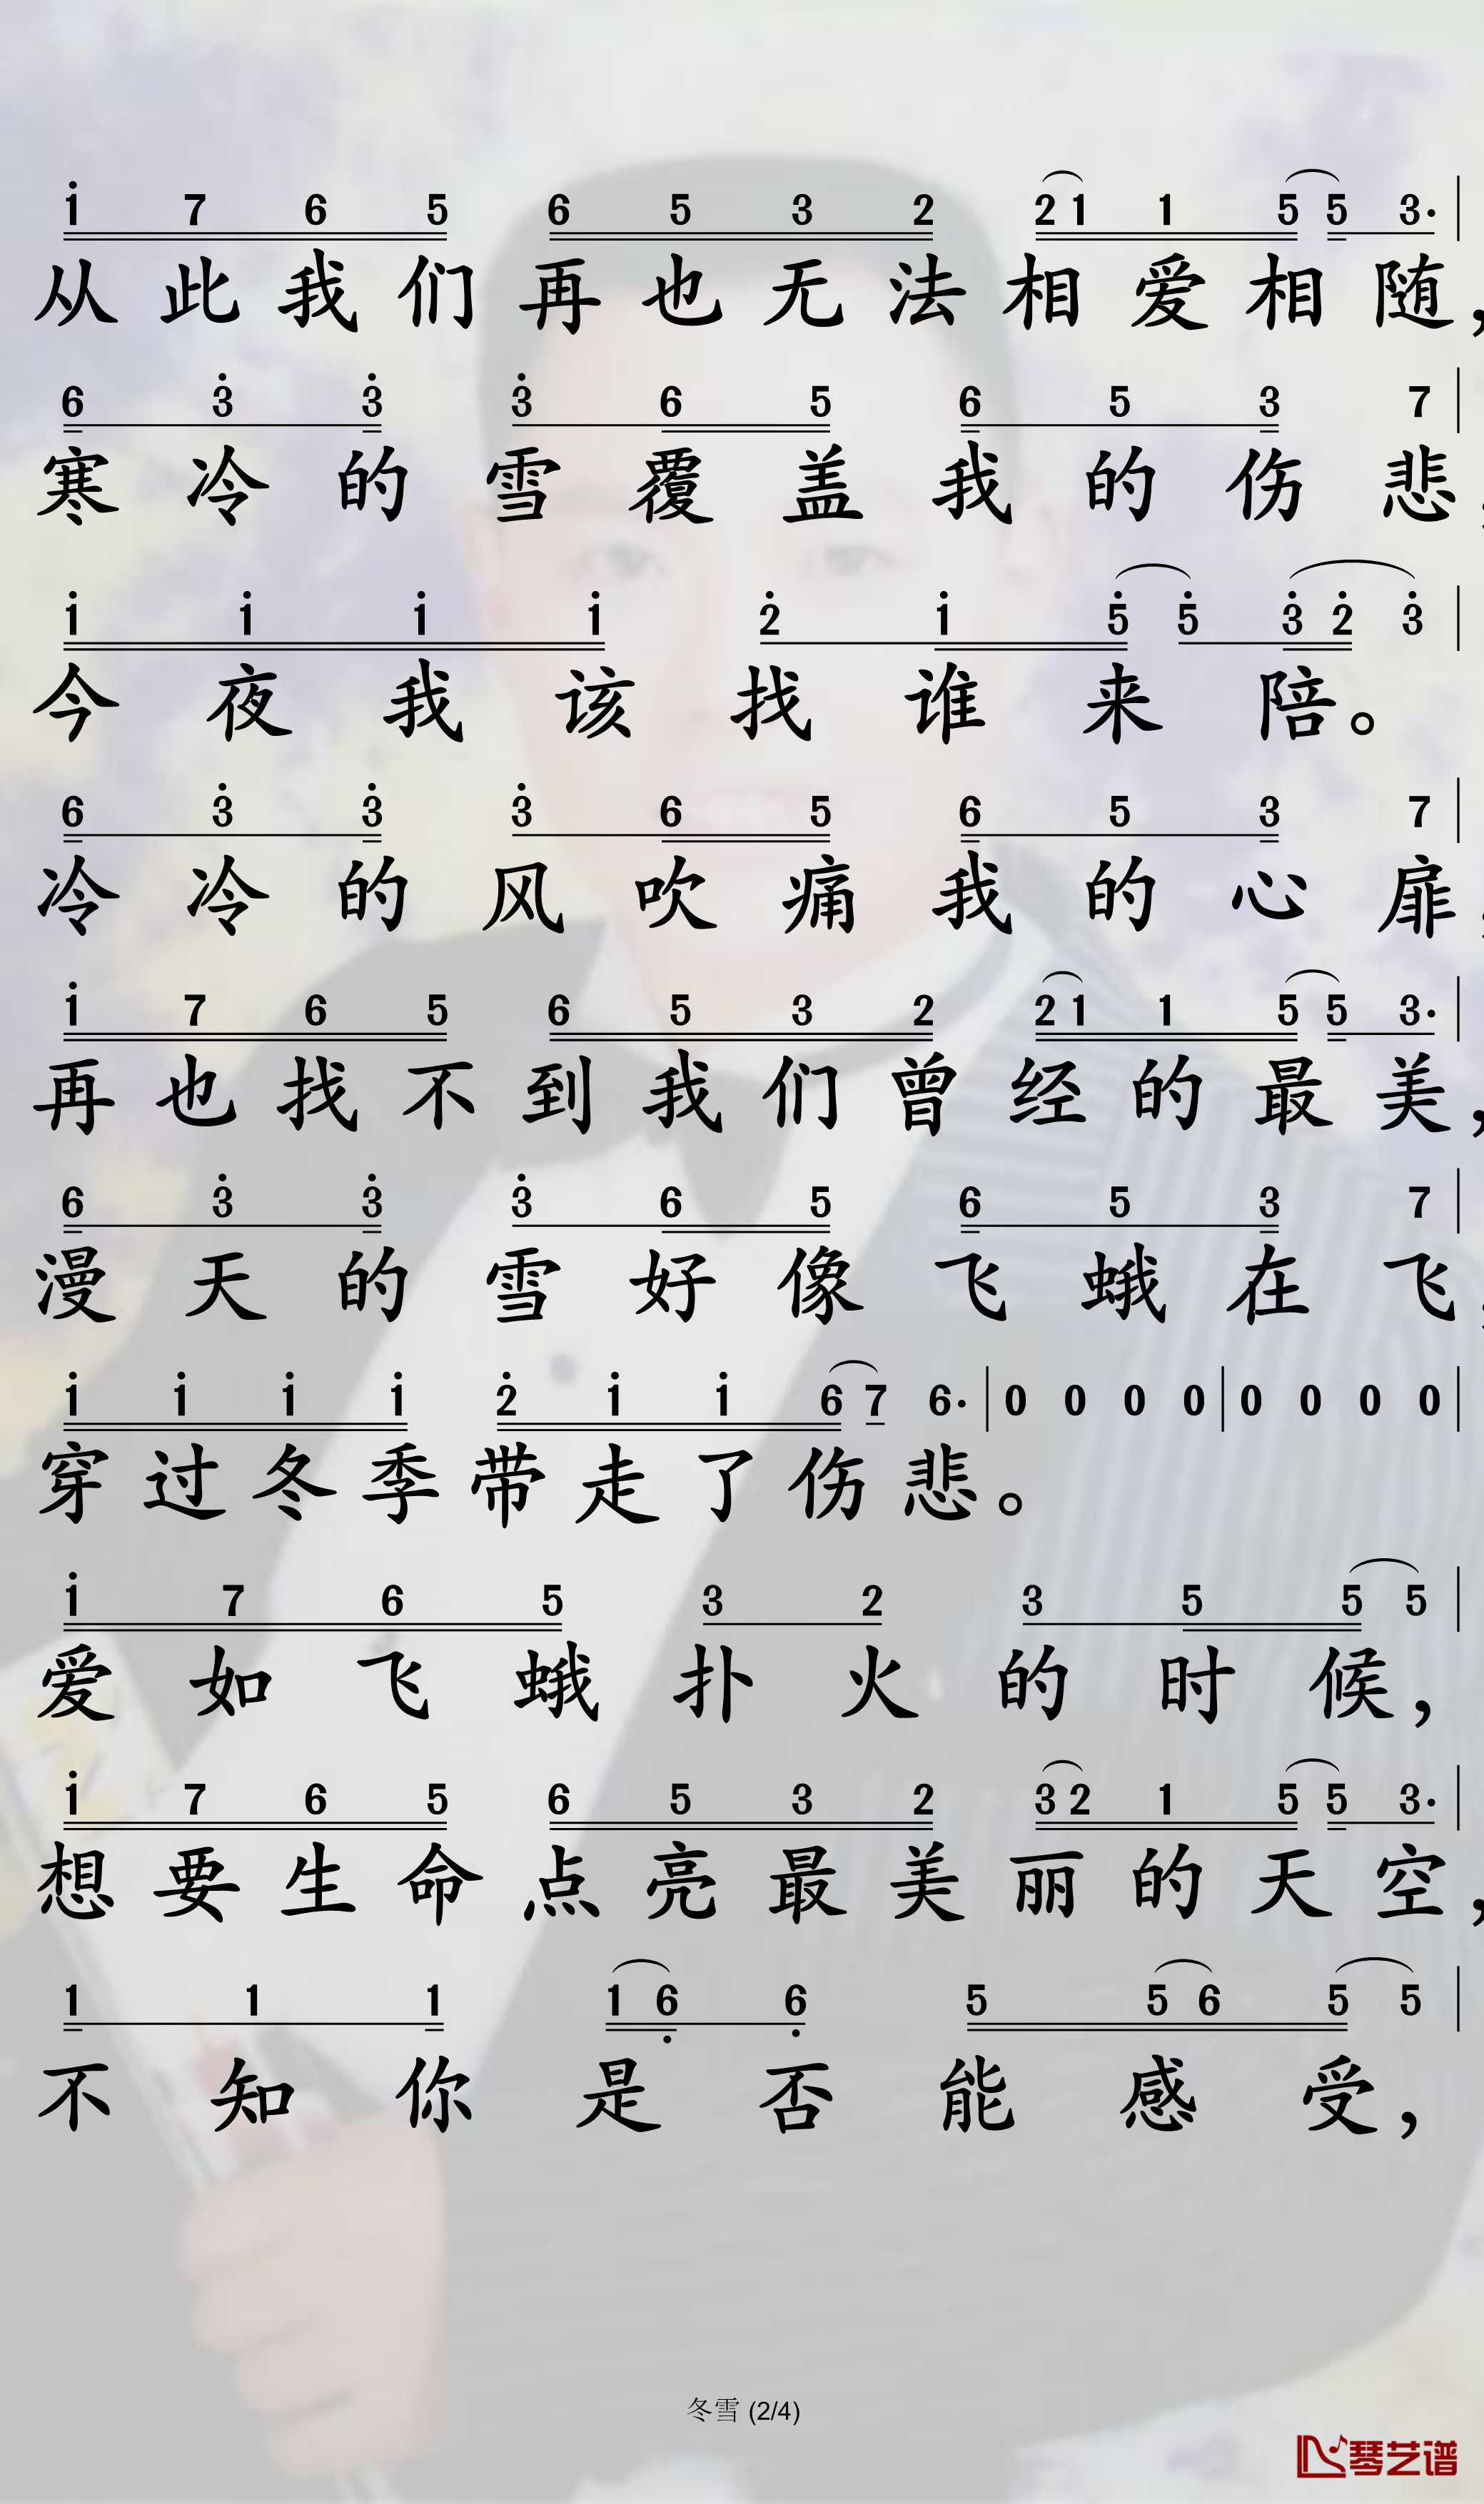 i 7 6 5 6 5 3 2 2 1 1 5 5 3·
从此我们再也无法相爱相随，
6 3̇ 3̇ 3̇ 6 5 6 5 3 7
寒冷的雪覆盖我的伤悲，
i i i i 2̇ i 5̇ 5̇ 3̇ 2̇ 3̇
今夜我该找谁来陪。
6 3̇ 3̇ 3̇ 6 5 6 5 3 7
冷冷的风吹痛我的心扉，
i 7 6 5 6 5 3 2 2 1 1 5 5 3·
再也找不到我们曾经的最美，
6 3̇ 3̇ 3̇ 6 5 6 5 3 7
漫天的雪好像飞蛾在飞，
i i i i 2̇ i i 6 7 6· | 0 0 0 0 | 0 0 0 0
穿过冬季带走了伤悲。
i 7 6 5 3 2 3 5 5 5
爱如飞蛾扑火的时候，
i 7 6 5 6 5 3 2 3 2 1 5 5 3·
想要生命点亮最美丽的天空，
1 1 1 1 6̣ 6̣ 5 5 6 5 5
不知你是否能感受，
冬雪 (2/4)
琴艺谱